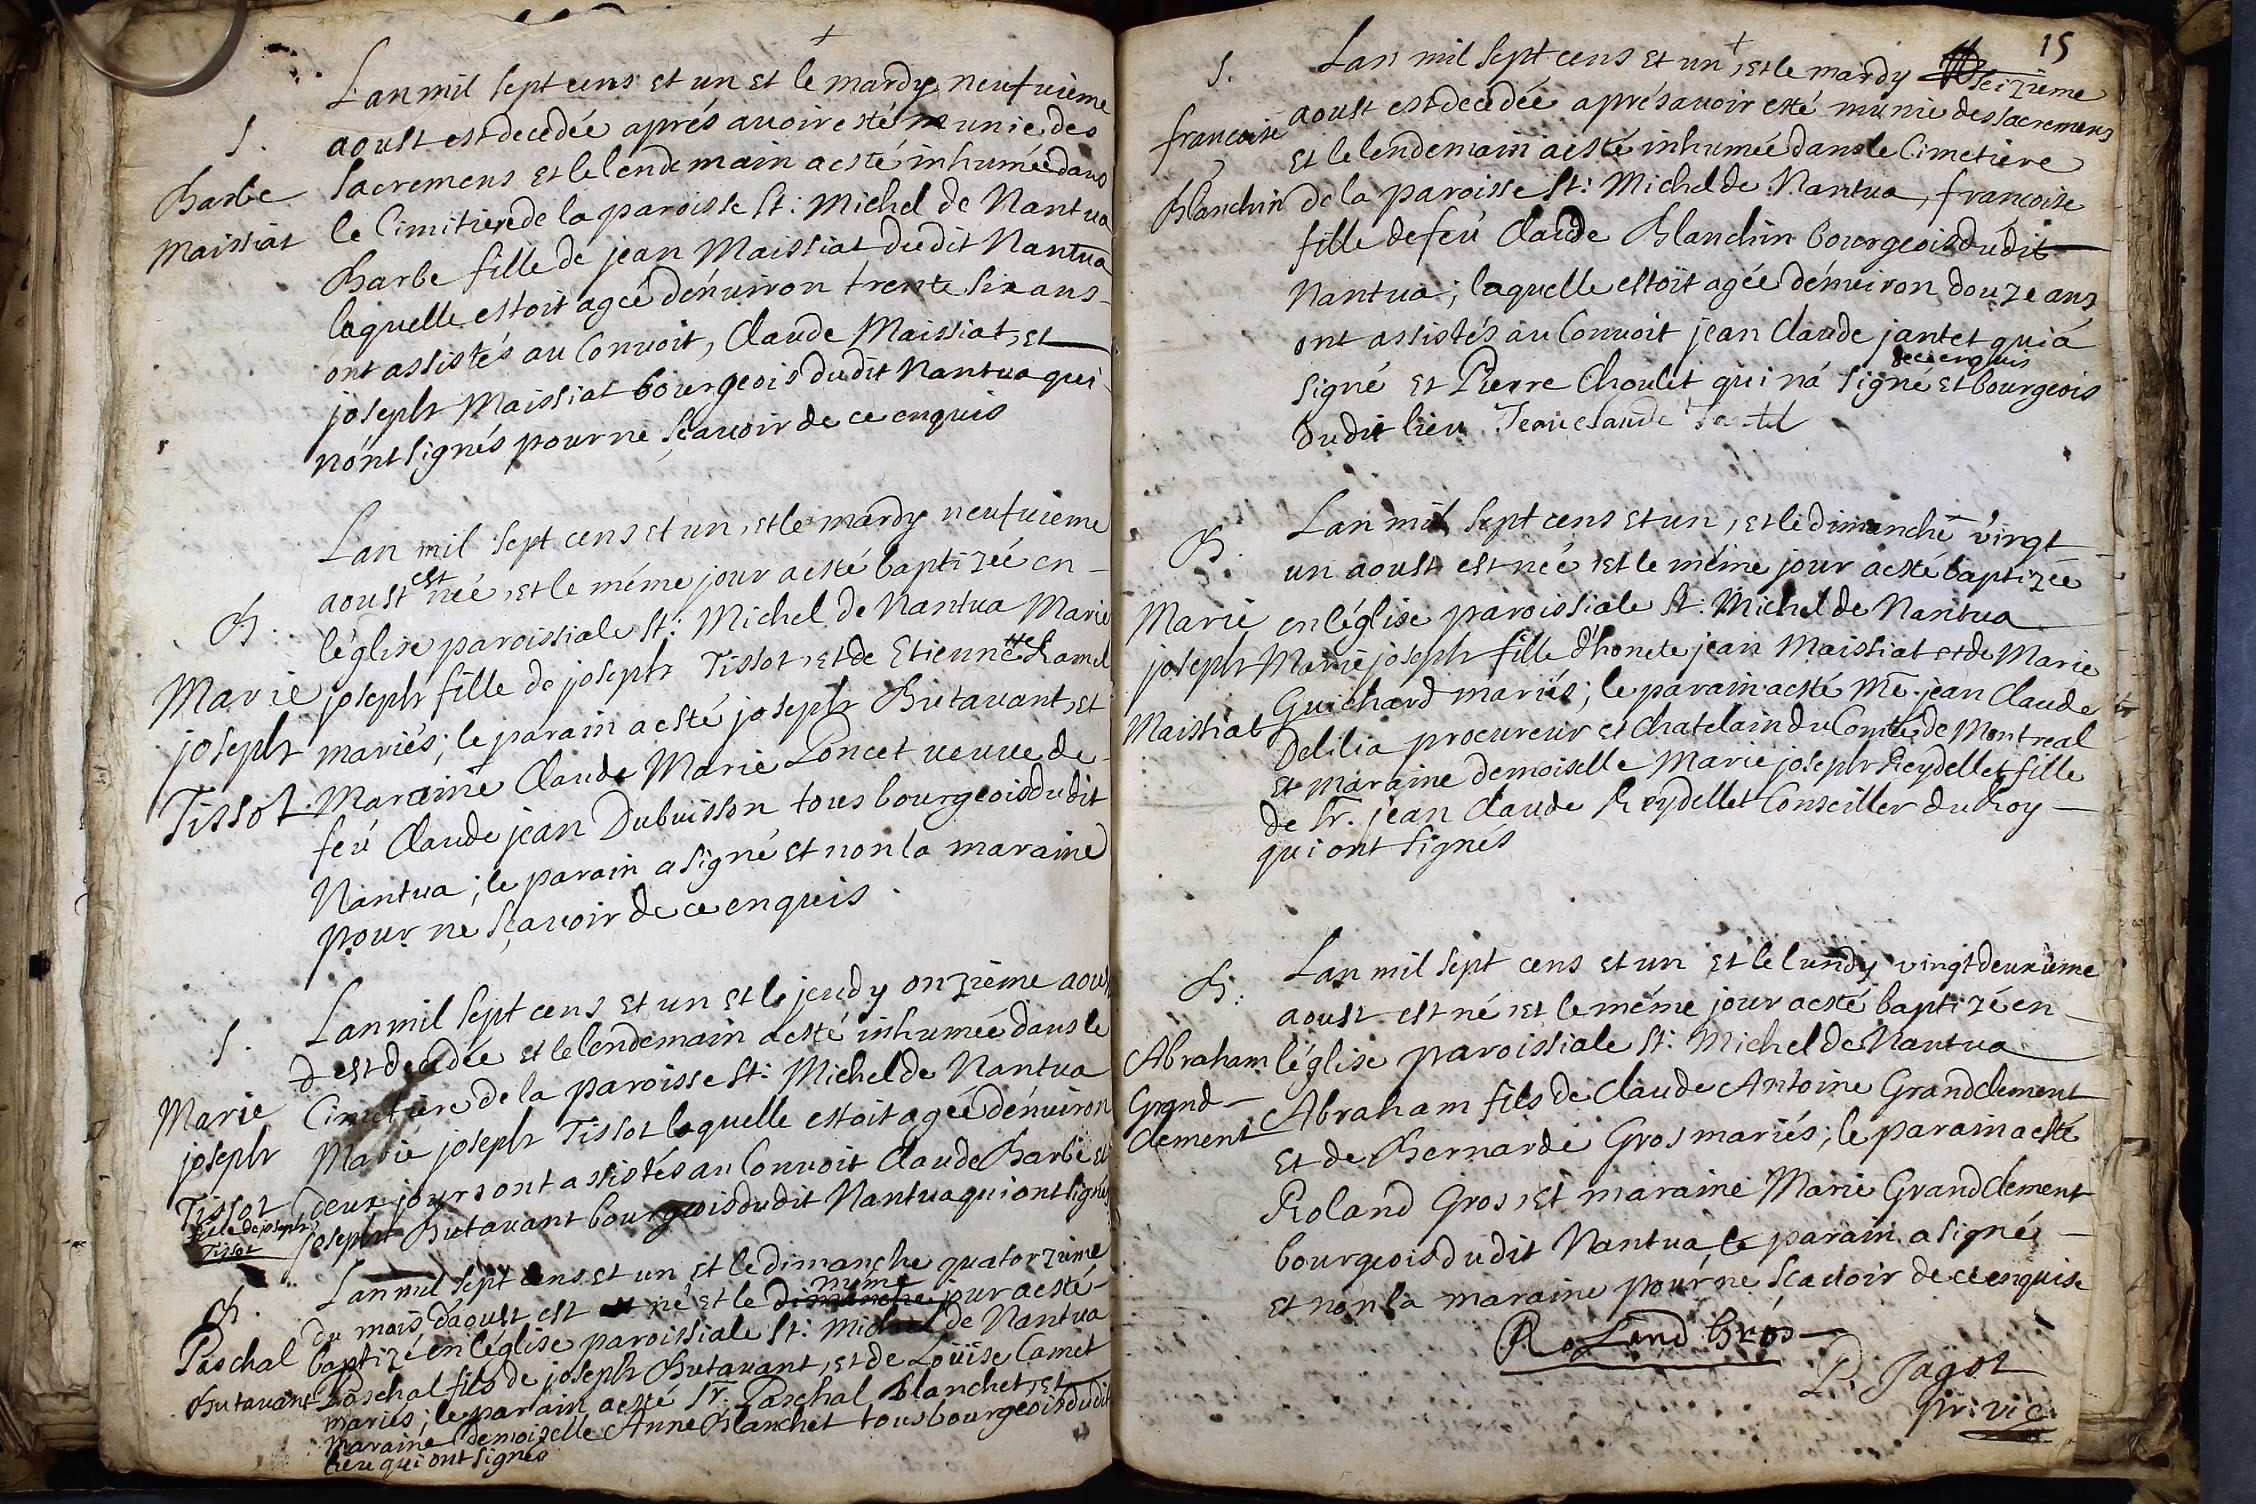 L'an mil sept cens et un et le mardy neufuieme
S. aoust est decedée aprés auoir esté munie des
Barbe sacremens et le lendemain a esté inhumée dans
Maissiat le Cimitiere de la paroisse St: Michel de Nantua
Barbe fille de jean Maissiat dudit Nantua
laquelle estoit agée dénuiron trente six ans
ont assistés au Conuoit, Claude Maissiat, et
joseph Maissiat bourgeois dudit Nantua qui
nónt signés pour ne sçauoir de ce enquis
Lan mil sept cens et un, et le mardy neufuieme
aoust est née, et le méme jour a esté baptizée en
B. léglise paroissiale St: Michel de Nantua Marie
Marie joseph fille de joseph Tissot, et de Etiennette Ramel
joseph mariés; le parain a esté joseph Butauant, et
Tissot Maraine Claude Marie Poncet ueuue de
feu Claude jean Dubuisson tous bourgeois dudit
Nantua; le parain a signé et non la maraine
pour ne sçauoir de ce enquis
Lan mil sept cens et un et le jeudy onzieme aoust
S. est decedée et le lendemain a esté inhumée dans le
Marie Cimetiere de la paroisse St: Michel de Nantua
joseph Marie joseph Tissot laquelle estoit agée dénuiron
Tissot deux jours ont assistés au Conuoit Claude Barbe et
fille de joseph Tissot joseph Butauant bourgeois dudit Nantua qui ont signés
Lan mil sept cens et un et le dimanche quatorzieme
B. du mois d'aoust est né et le dimanche méme jour a esté
Paschal baptizé en léglise paroissiale St: Michel de Nantua
Butauant Paschal fils de joseph Butauant, et de Loüise Camet
mariés; le parain a esté Sr. Paschal Blanchet, et
maraine demoiselle Anne Blanchet tous bourgeois dudit
lieu qui ont signés
15
S. Lan mil sept cens et un, et le mardy seizieme
francoise aoust est decedée aprés auoir esté munie des sacremens
et le lendemain a esté inhumée dans le Cimetiere
Blanchin de la paroisse St: Michel de Nantua, francoise
fille de feu Claude Blanchin bourgeois dudit
Nantua; laquelle estoit agée dénuiron douze ans
ont assistés au Conuoit jean Claude jantet qui a
signé et Pierre Choulet qui ná signé de ce enquis et bourgeois
dudit lieu Jean claude
B. Lan mil sept cens et un, et le dimanche vingt
un aoust est née et le méme jour a esté baptizée
Marie en léglise paroissiale St: Michel de Nantua
joseph Marie joseph fille d'honete jean Maissiat et de Marie
Maissiat Guichard mariés; le parain a esté Me. jean Claude
Delilia procureur et chatelain du Comté de Montreal
et maraine demoiselle Marie joseph Reydellet fille
de Sr. jean Claude Reydellet Conseiller du Roy
qui ont signés
B. Lan mil sept cens et un et le lundy vingt deuxieme
aoust est né et le méme jour a esté baptizé en
Abraham léglise paroissiale St: Michel de Nantua
Grand-clement Abraham fils de Claude Antoine Grandclement
et de Bernarde Gros mariés; le parain a esté
Roland Gros, et maraine Marie Grandclement
bourgeois dudit Nantua, le parain a signé
et non la maraine pour ne sçauoir de ce enquise
Roland Gros
P. Jagot
pr. vic.